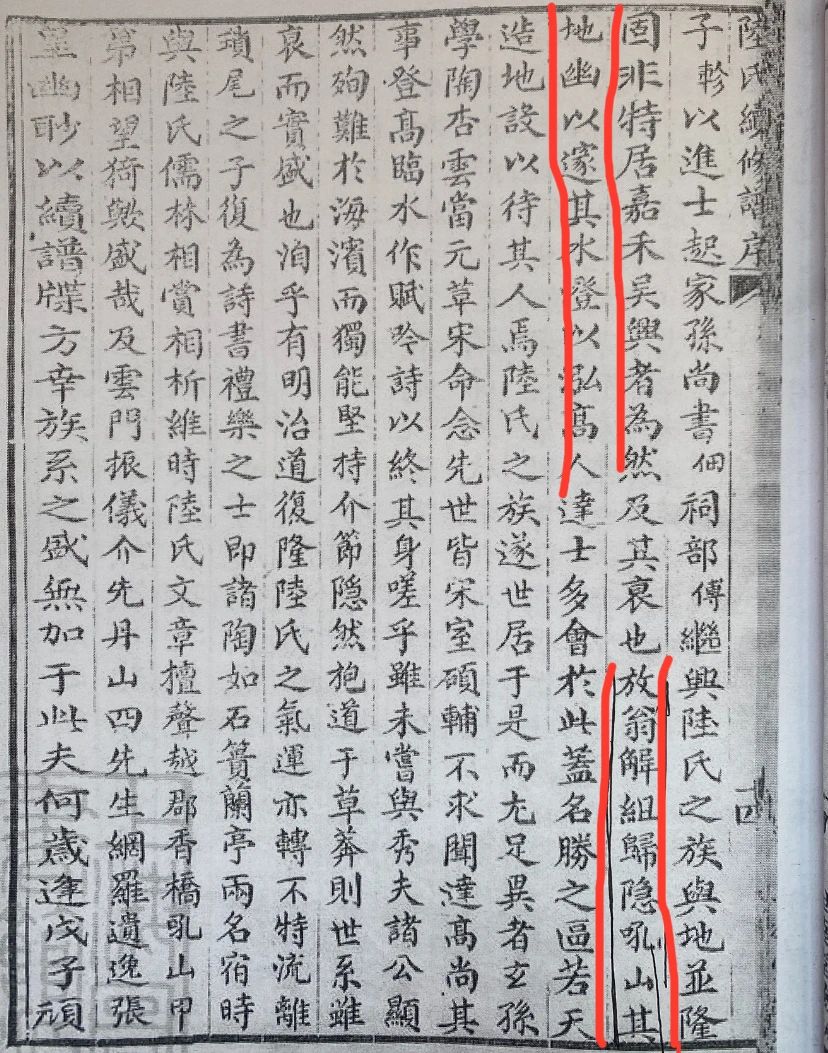 陸氏續修譜序
四
子軫以進士起家孫尚書佃祠部傅繼興陸氏之族與地並隆
固非特居嘉禾吳興者為然及其衰也放翁解組歸隐吼山其
地幽以邃其水澄以泓高人達士多會於此蓋名勝之區若天
造地設以待其人焉陸氏之族遂世居于是而尤足異者玄孫
學陶杏雲當元草宋命念先世皆宋室碩輔不求聞達高尚其
事登高臨水作賦吟詩以終其身嗟乎雖未嘗與秀夫諸公顯
然殉難於海濱而獨能堅持介節隐然抱道于草莽則世系雖
衰而實盛也洎乎有明治道復隆陸氏之氣運亦轉不特流離
瑣尾之子復為詩書禮樂之士即諸陶如石簣蘭亭兩名宿時
與陸氏儒林相賞相析維時陸氏文章擅聲越郡香橋吼山甲
第相望猗歟盛哉及雲門振儀介先丹山四先生網羅遺逸張
皇幽眇以續譜牒方幸族系之盛無加于此夫何歲逢戊子頑